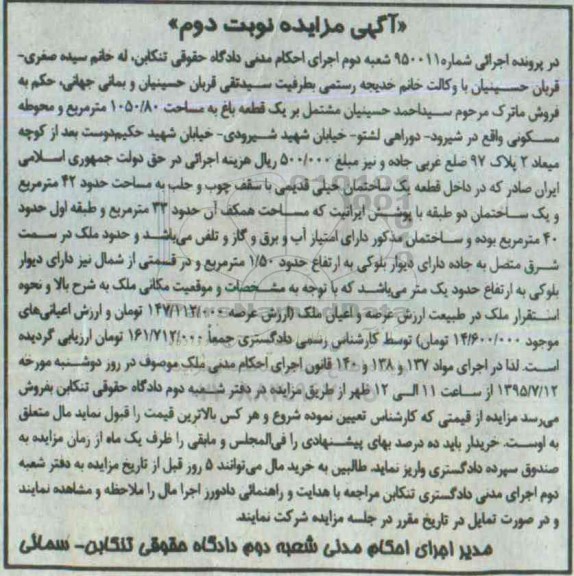 «آگهی مزایده نوبت دوم»
در پرونده اجرائی شماره۹۵۰۰۱۱ شعبه دوم اجرای احکام مدنی دادگاه حقوقی تنکابن، له خانم سیده صغری-
قربان حسینیان با وکالت خانم خدیجه رستمی بطرفیت سیدتقی قربان حسینیان و بمانی جهانی، حکم به
فروش ماترک مرحوم سیداحمد حسینیان مشتمل بر یک قطعه باغ به مساحت ۱۰۵۰/۸۰ مترمربع و محوطه
مسکونی واقع در شیرود- دوراهی لشتو- خیابان شهید شیرودی- خیابان شهید حکیم‌دوست بعد از کوچه
میعاد ۲ پلاک ۹۷ ضلع غربی جاده و نیز مبلغ ۵۰۰/۰۰۰ ریال هزینه اجرائی در حق دولت جمهوری اسلامی
ایران صادر که در داخل قطعه یک ساختمان خیلی قدیمی با سقف چوب و حلب به مساحت حدود ۴۲ مترمربع
و یک ساختمان دو طبقه با پوشش ایرانیت که مساحت همکف آن حدود ۳۳ مترمربع و طبقه اول حدود
۴۰ مترمربع بوده و ساختمان مذکور دارای امتیاز آب و برق و گاز و تلفن می‌باشد و حدود ملک در سمت
شرق متصل به جاده دارای دیوار بلوکی به ارتفاع حدود ۱/۵۰ مترمربع و در قسمتی از شمال نیز دارای دیوار
بلوکی به ارتفاع حدود یک متر می‌باشد که با توجه به مشخصات و موقعیت مکانی ملک به شرح بالا و نحوه
استقرار ملک در طبیعت ارزش عرصه و اعیان ملک (ارزش عرصه ۱۴۷/۱۱۲/۰۰۰ تومان و ارزش اعیانی‌های
موجود ۱۴/۶۰۰/۰۰۰ تومان) توسط کارشناس رسمی دادگستری جمعاً ۱۶۱/۷۱۲/۰۰۰ تومان ارزیابی گردیده
است. لذا در اجرای مواد ۱۳۷ و ۱۳۸ و ۱۴۰ قانون اجرای احکام مدنی ملک موصوف در روز دوشنبه مورخه
۱۳۹۵/۷/۱۲ از ساعت ۱۱ الی ۱۲ ظهر از طریق مزایده در دفتر شعبه دوم دادگاه حقوقی تنکابن بفروش
می‌رسد مزایده از قیمتی که کارشناس تعیین نموده شروع و هر کس بالاترین قیمت را قبول نماید مال متعلق
به اوست. خریدار باید ده درصد بهای پیشنهادی را فی‌المجلس و مابقی را ظرف یک ماه از زمان مزایده به
صندوق سپرده دادگستری واریز نماید. طالبین به خرید مال می‌توانند ۵ روز قبل از تاریخ مزایده به دفتر شعبه
دوم اجرای مدنی دادگستری تنکابن مراجعه با هدایت و راهنمائی دادورز اجرا مال را ملاحظه و مشاهده نمایند
و در صورت تمایل در تاریخ مقرر در جلسه مزایده شرکت نمایند.
مدیر اجرای احکام مدنی شعبه دوم دادگاه حقوقی تنکابن- سمائی